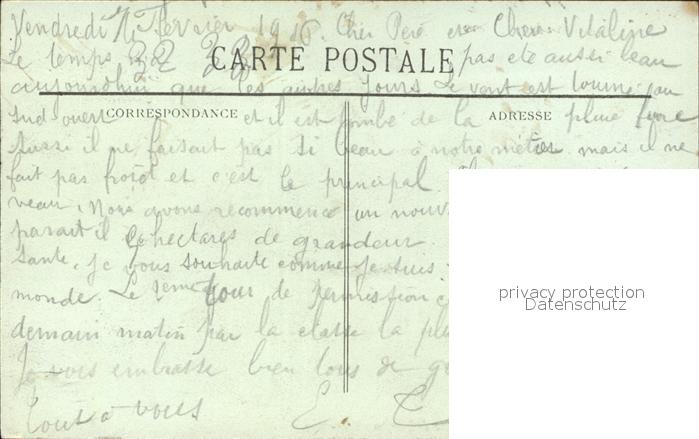 Vendredi 11 Fevrier 1916. Cher Père et Chère Vitaline
Le temps n'a pas ete aussi beau
CARTE POSTALE
aujourdhui que les autres jours. Le vent est tourne au
CORRESPONDANCE
ADRESSE
sud ouest et il est tombé de la pluie fine
Aussi il ne faisait pas si beau a notre métier mais il ne
fait pas froid et c'est le principal
veau. Nous avons recommencé un nouv
parait il hectares de grandeur
sante. Je vous souhaite comme je suis
monde. Le 2eme tour de permission
demain matin par la classe la plu
Je vous embrasse bien tous de
Tout a vous E.
privacy protection
Datenschutz